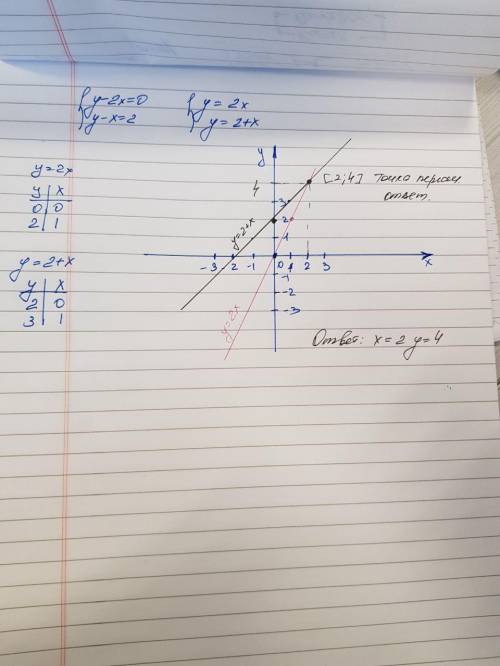 {y-2x=0 {y=2x
{y-x=2 {y=2+x
y=2x
y x
0 0
2 1
y=2+x
y x
2 0
3 1
y
4
3
2
1
-3 2 -1 0 1 2 3 x
-1
-2
-3
y=2+x
y=2x
[2;4] Точка
ответ.
Ответ: x=2 y=4